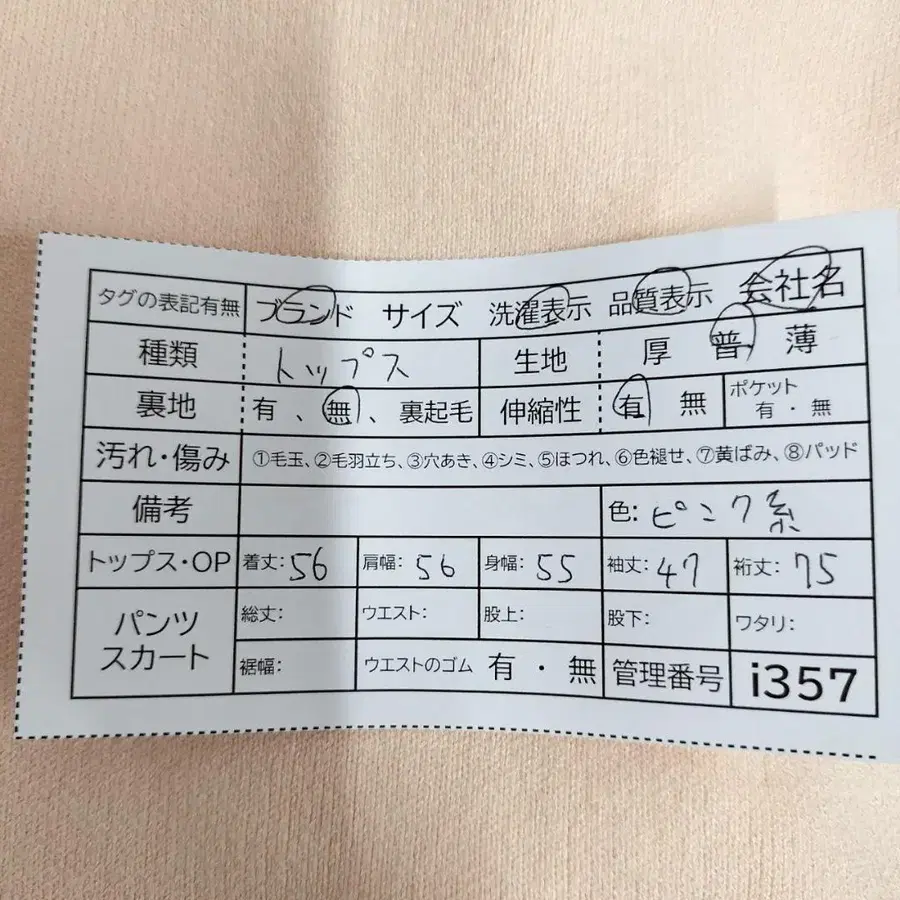 タグの表記有無 ブランド サイズ 洗濯表示 品質表示 会社名
種類 トップス 生地 厚 普 薄
裏地 有、無、裏起毛 伸縮性 有 無 ポケット 有・無
汚れ・傷み ①毛玉、②毛羽立ち、③穴あき、④シミ、⑤ほつれ、⑥色褪せ、⑦黄ばみ、⑧パッド
備考 色: ピンク系
トップス・OP 着丈: 56 肩幅: 56 身幅: 55 袖丈: 47 裄丈: 75
パンツ スカート 総丈: ウエスト: 股上: 股下: ワタリ:
裾幅: ウエストのゴム 有・無 管理番号 i357